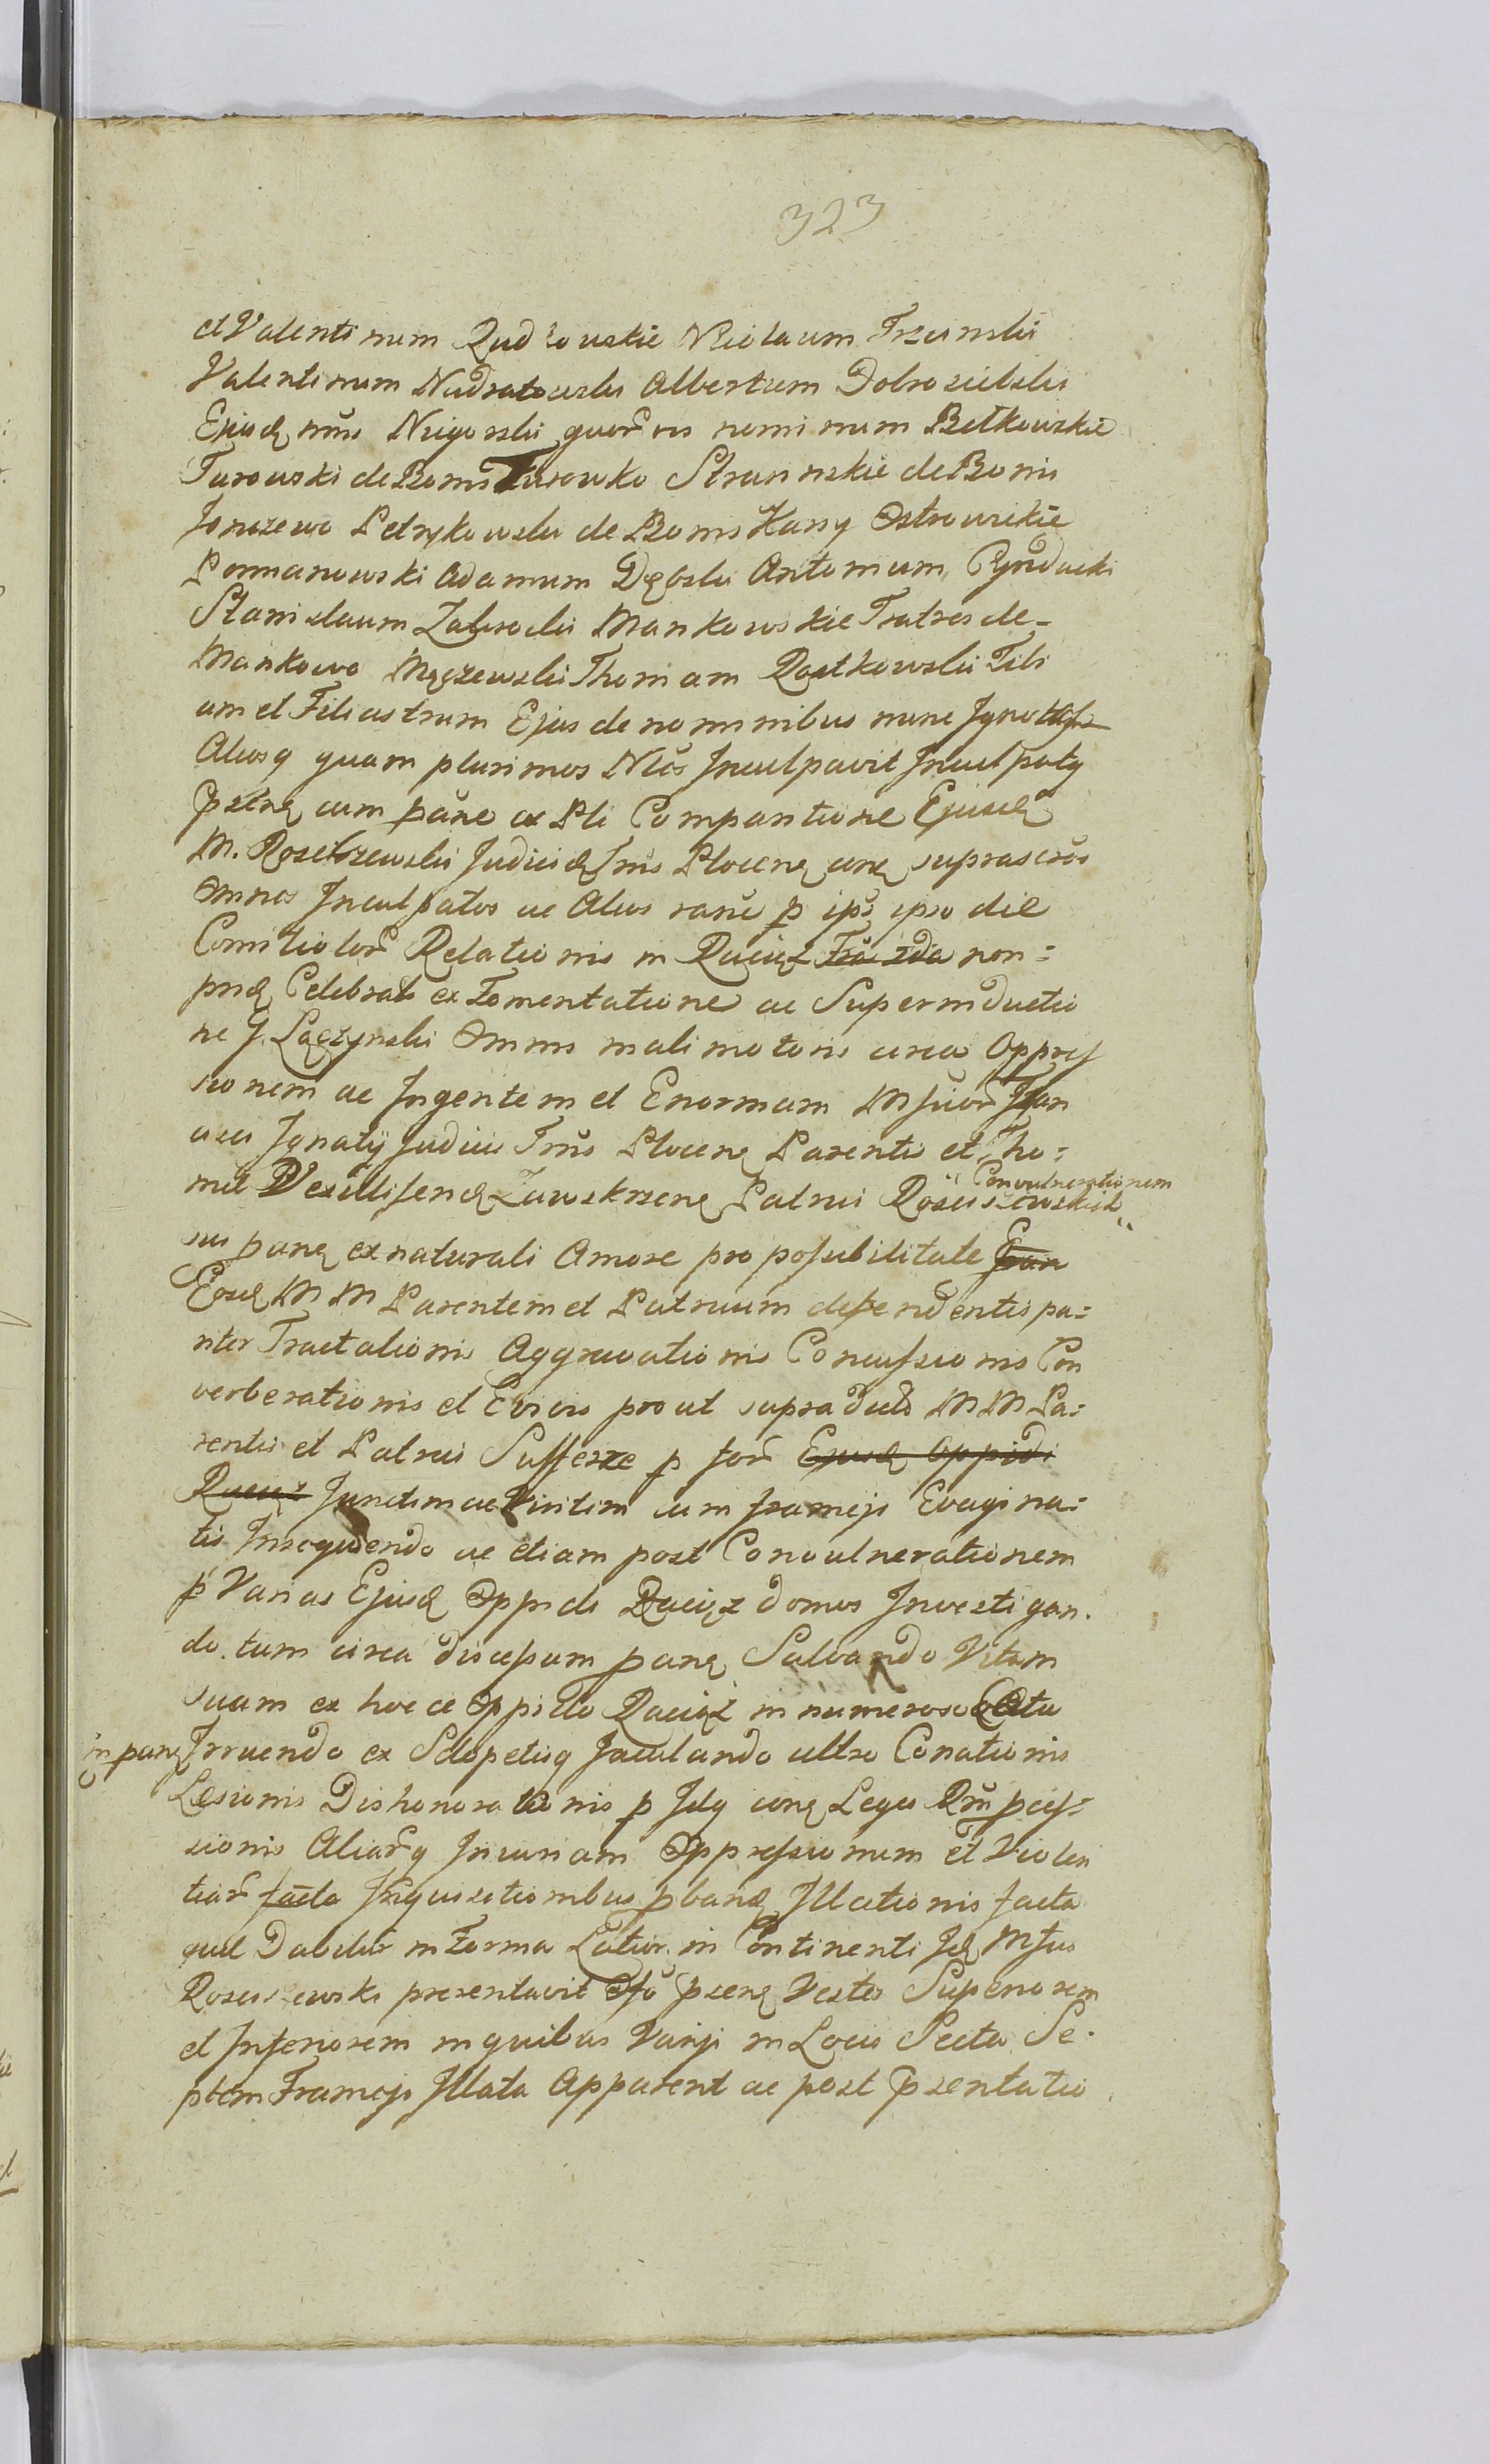 323
et Valentinum Rudkowskie Nicolaum Trzcinski
Valentinum Nudratowski Albertum Dobrosielski
Ejusd nõis Nugorski quor vis nominum Bełkowskie
Turowski de Bonis Turowko Straninskie de Bonis
Jonszewo Petrykowski de Bonis Kary Ostrowskie
Pormanowski Adamum Dębski Antonium
Stanislaum Zabrocki Mankowskie Fratres de
Mankowo Męczewski Thomam Rostkowski Fili
um et Filiastrum Ejus de nominibus nunc Ignotos
Aliosq quam plurimos Nles Inculpavit Inculpatq
pttnq cum pane ac Pli Comparitione Ejusd
M. Rosciszewski Judicid Tris Plocenq conq suprascrõs
omnes Inculpatos ac Alios raõe p ips ipso die
Comitiolor Relationis in Raciąz non=
pnd Celebrato ex Fomentatione ac Superinductio
ne G. Lączynski Omnis mali motoris circa Oppres
sionem ac Ingentem et Enormam Mficor Fran
cisci Ignatij Judicis Tris Plocenq Parentis et Tho=
Convulnerationem
mæ Vexilliferid Zawskrzenq Patrui Rosciszewskich
sui panq ex naturali Amore pro possibilitate
Eosd M M Parentem et Patruum defendentis pa=
riter Tractationis Aggravationis Concussionis Con
verberationis et Cricis prout supradicto M M Pa=
rentis et Patrui Sufferre p for Ejusd Oppidi
Raciąz Junctim ac Viritim cum frameis Evagina=
tis Insequendo ac etiam post Convulnerationem
p Varias Ejusd Oppidi Raciąz domos Investigan.
do. tum circa discessum panq Salvando Vitam
suam ex hocce Oppido Raciąz in numeroso Cœtu
in panq Irruendo ex Sclopetisq Jaculando ultro Conationis
Læsionis Dishonorationis p Idq conq Leges Rni pcis=
sionis Aliarq Iniuriam Oppressionum et Violen
tiar facta Inquisitionibus pband Illationis facta
quæ Dabitur in Forma Latior in Continenti Id Mfus
Rosciszewski presentavit Offo psenq Vestes Superiorem
et Inferiorem in quibus Varijs in Locis Secta Se.
ptem Frameis Illata Apparent ac post psentatio